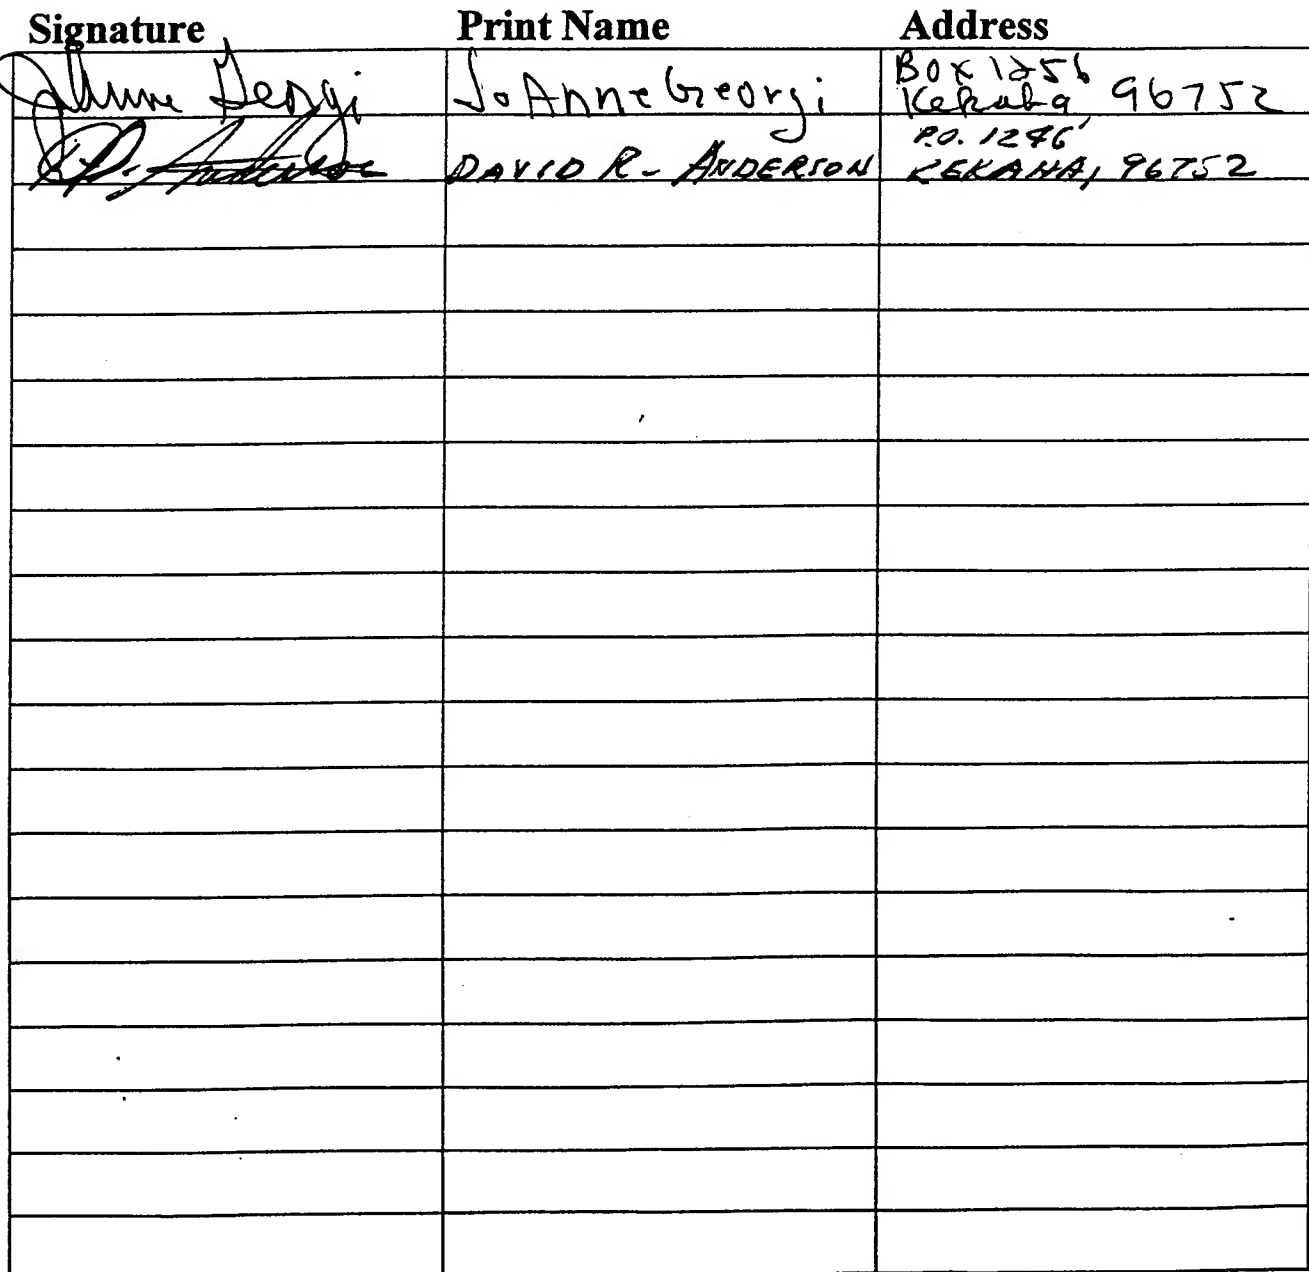 Signature Print Name Address
JoAnne Georgi JoAnne Georgi Box 1256
Kekaha, 96752
D. Anderson DAVID R. ANDERSON P.O. 1246
KEKAHA, 96752